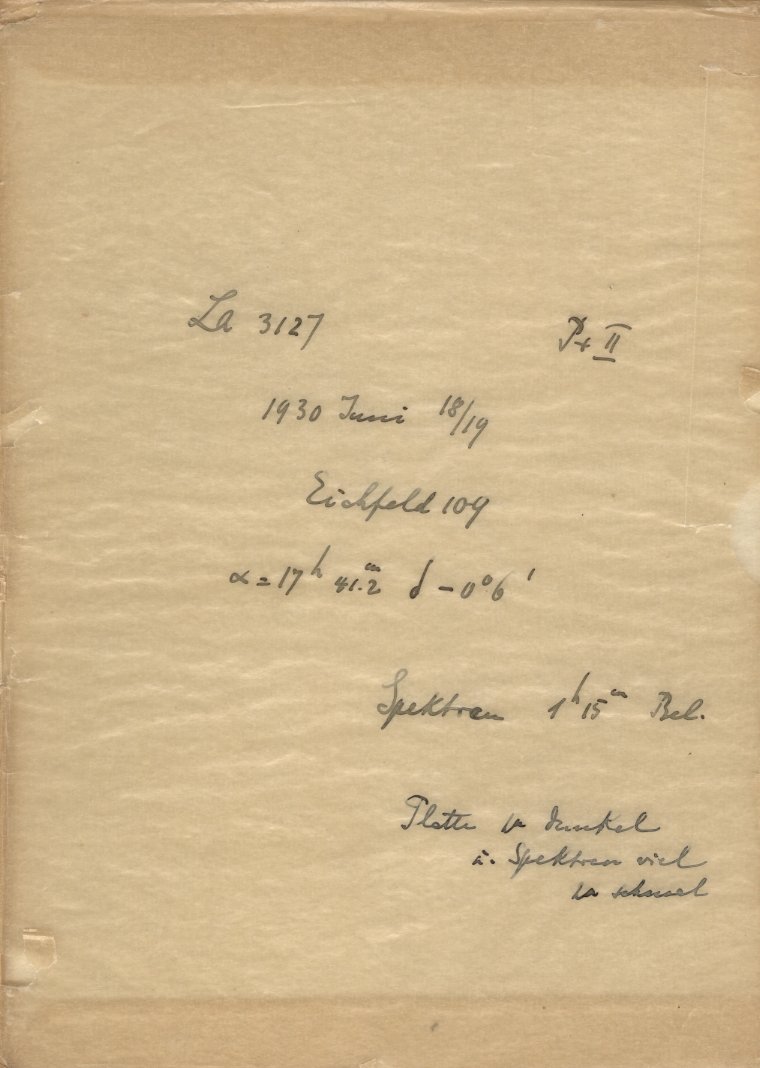 La 3127 Pr II
1930 Juni 18/19
Eichfeld 109
α = 17h 41.2m δ -0°6'
Spektren 1h 15m Bel.
Platte zu dunkel
u. Spektren viel
zu schmal